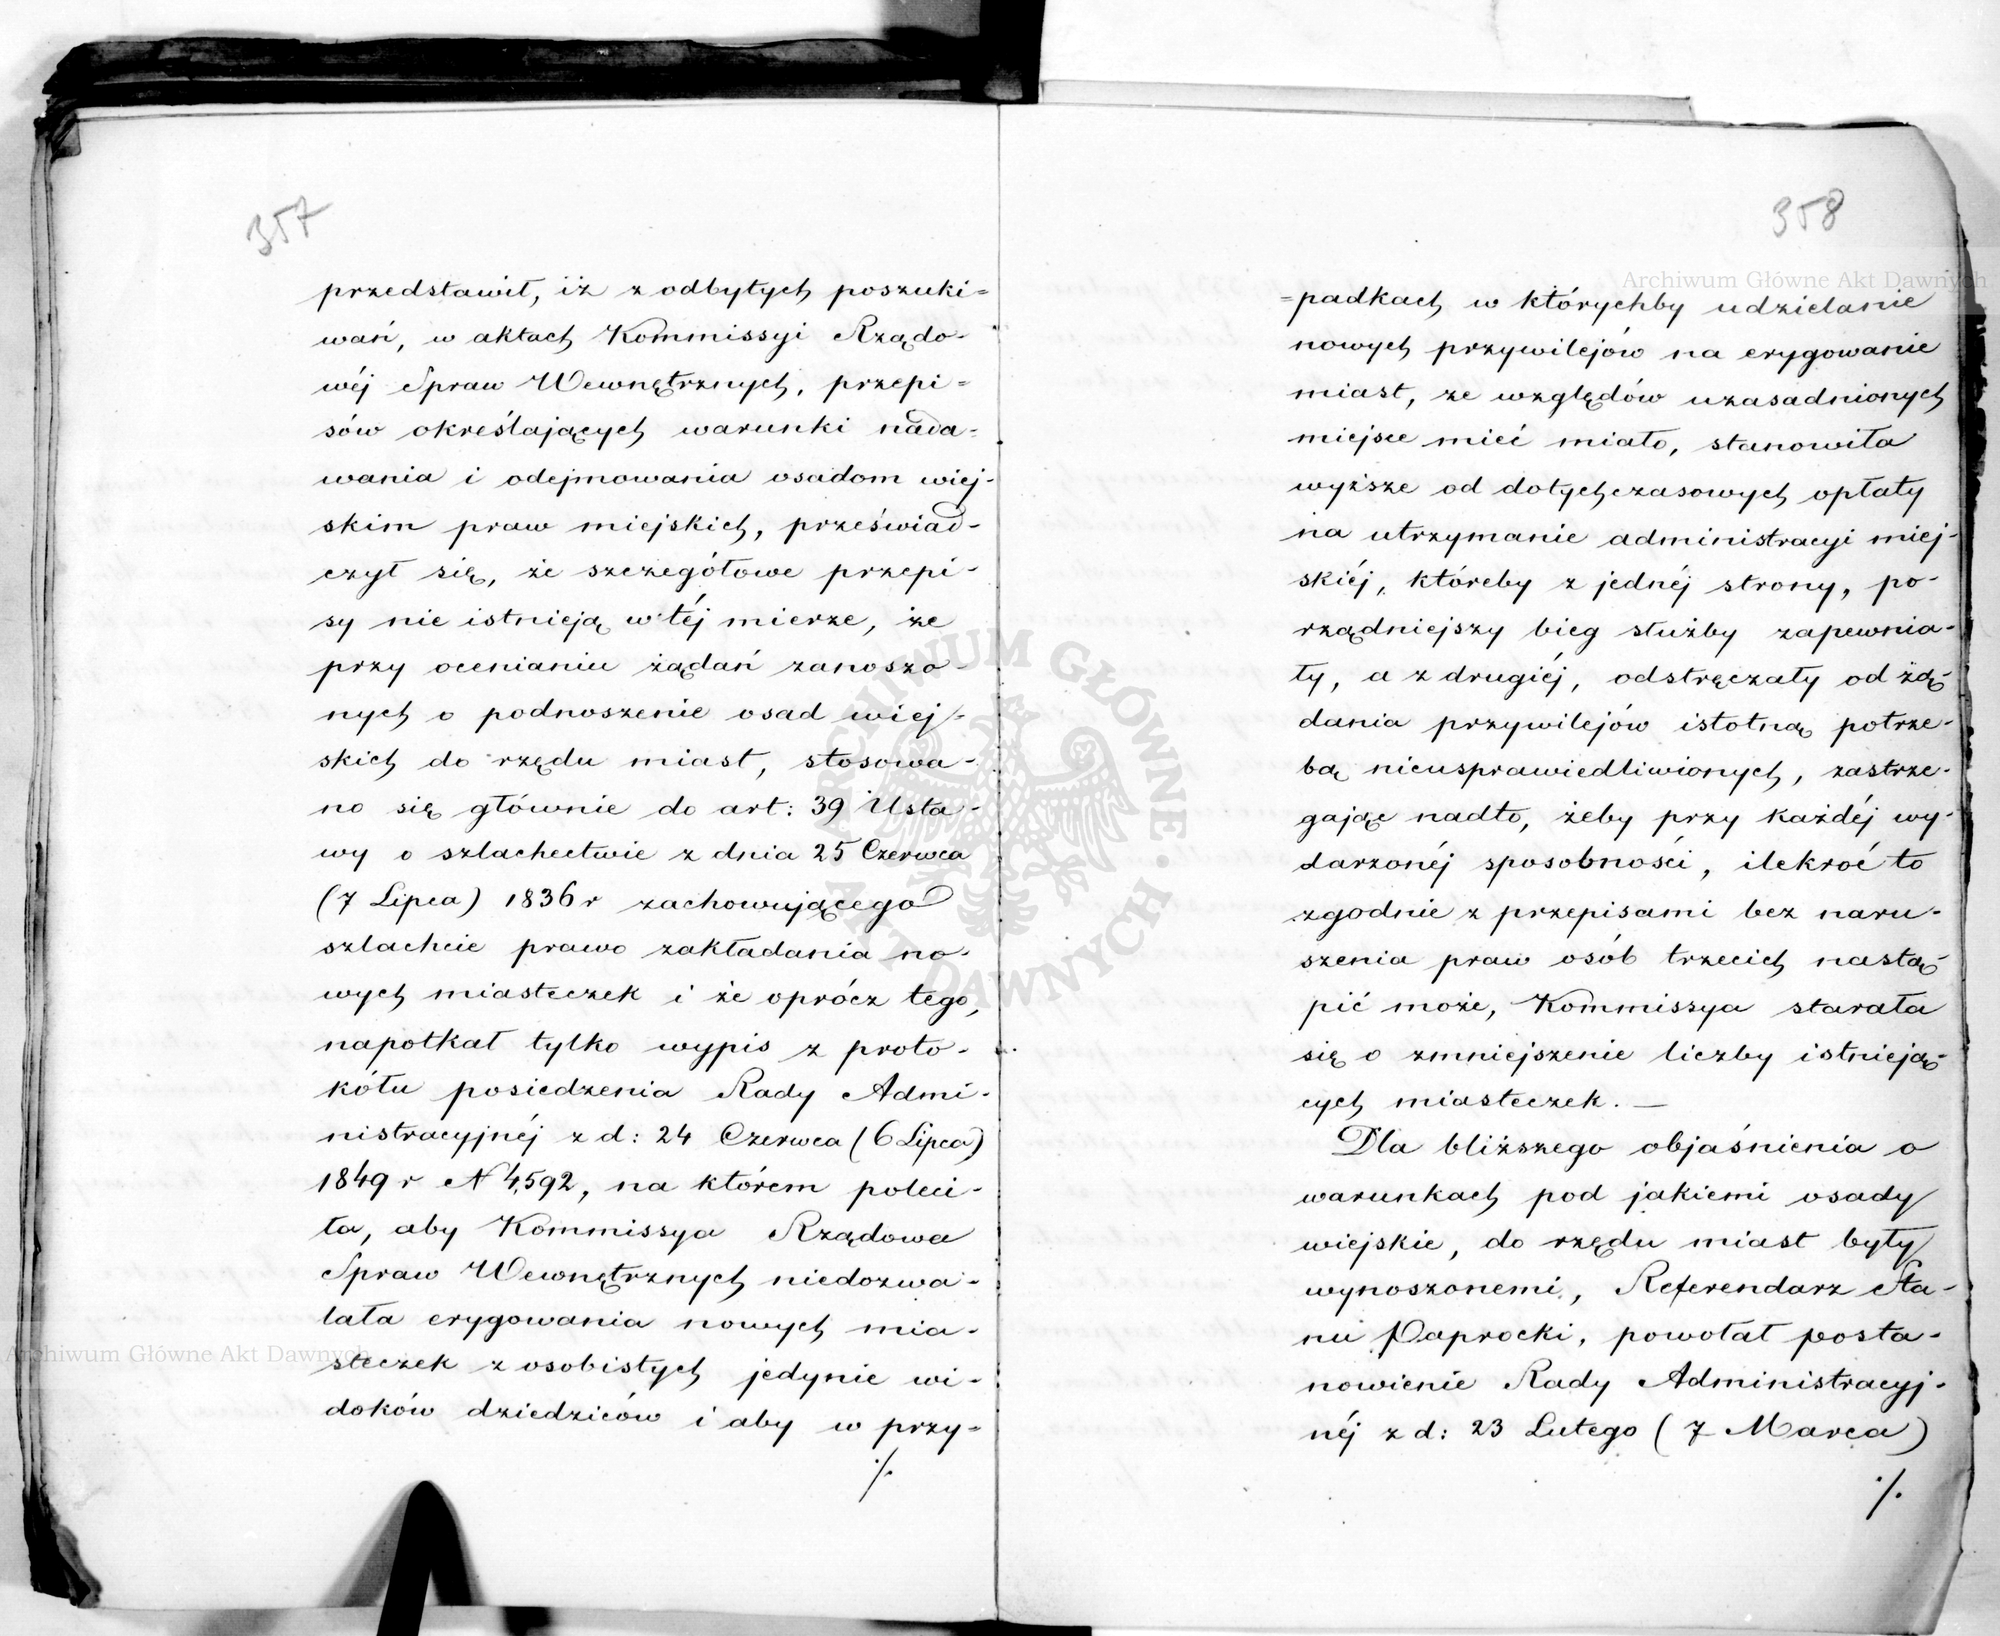 357
przedstawił, iż z odbytych poszuki=
wań, w aktach Kommissyi Rządo-
wéj Spraw Wewnętrznych, przepi=
sów określających warunki nada-
wania i odejmowania osadom wiej-
skim praw miejskich, przeświad-
czył się, że szczegółowe przepi-
sy nie istnieją w téj mierze, że
przy ocenianiu żądań zanoszo-
nych o podnoszenie osad wiej-
skich do rzędu miast, stosowa-
no się głównie do art: 39 Usta-
wy o szlachectwie z dnia 25 Czerwca
(7 Lipca) 1836 r zachowującego
szlachcie prawo zakładania no-
wych miasteczek i że oprócz tego,
napotkał tylko wypis z proto-
kółu posiedzenia Rady Admi-
nistracyjnéj z d: 24 Czerwca (6 Lipca)
1849 r N 4,592, na którem poleci-
ła, aby Kommissya Rządowa
Spraw Wewnętrznych niedozwa-
lała erygowania nowych mia-
steczek z osobistych jedynie wi-
doków dziedziców i aby w przy-
./.
358
=padkach, w którychby udzielanie
nowych przywilejów na erygowanie
miast, ze względów uzasadnionych
miejsce mieć miało, stanowiła
wyższe od dotychczasowych opłaty
na utrzymanie administracyi miej-
skiéj, któreby z jednéj strony, po-
rządniejszy bieg służby zapewnia-
ły, a z drugiéj, odstręczały od żą-
dania przywilejów istotną potrze-
bą nieusprawiedliwionych, zastrze-
gając nadto, żeby przy każdéj wy-
darzonéj sposobności, ilekroć to
zgodnie z przepisami bez naru-
szenia praw osób trzecich nastą-
pić może, Kommissya starała
się o zmniejszenie liczby istnieją-
cych miasteczek. —
Dla bliższego objaśnienia o
warunkach pod jakiemi osady
wiejskie, do rzędu miast były
wynoszonemi, Referendarz Sta-
nu Paprocki, powołał posta-
nowienie Rady Administracyj-
néj z d: 23 Lutego (7 Marca)
./.
Archiwum Główne Akt Dawnych
Archiwum Główne Akt Dawnych
ARCHIWUM GŁÓWNE · AKT DAWNYCH ·